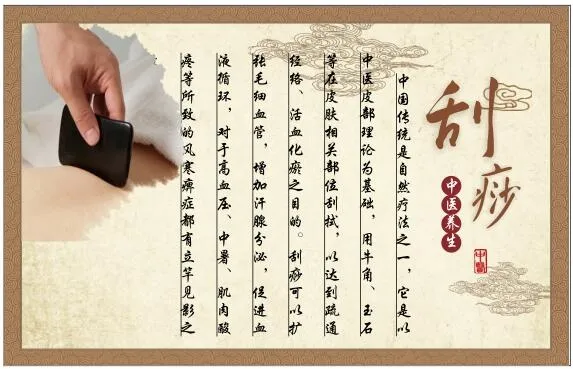 刮痧
中医养生
中醫
中国传统是自然疗法之一，它是以
中医皮部理论为基础，用牛角、玉石
等在皮肤相关部位刮拭，以达到疏通
经络、活血化瘀之目的。刮痧可以扩
张毛细血管，增加汗腺分泌，促进血
液循环，对于高血压、中暑、肌肉酸
疼等所致的风寒痹症都有立竿见影之